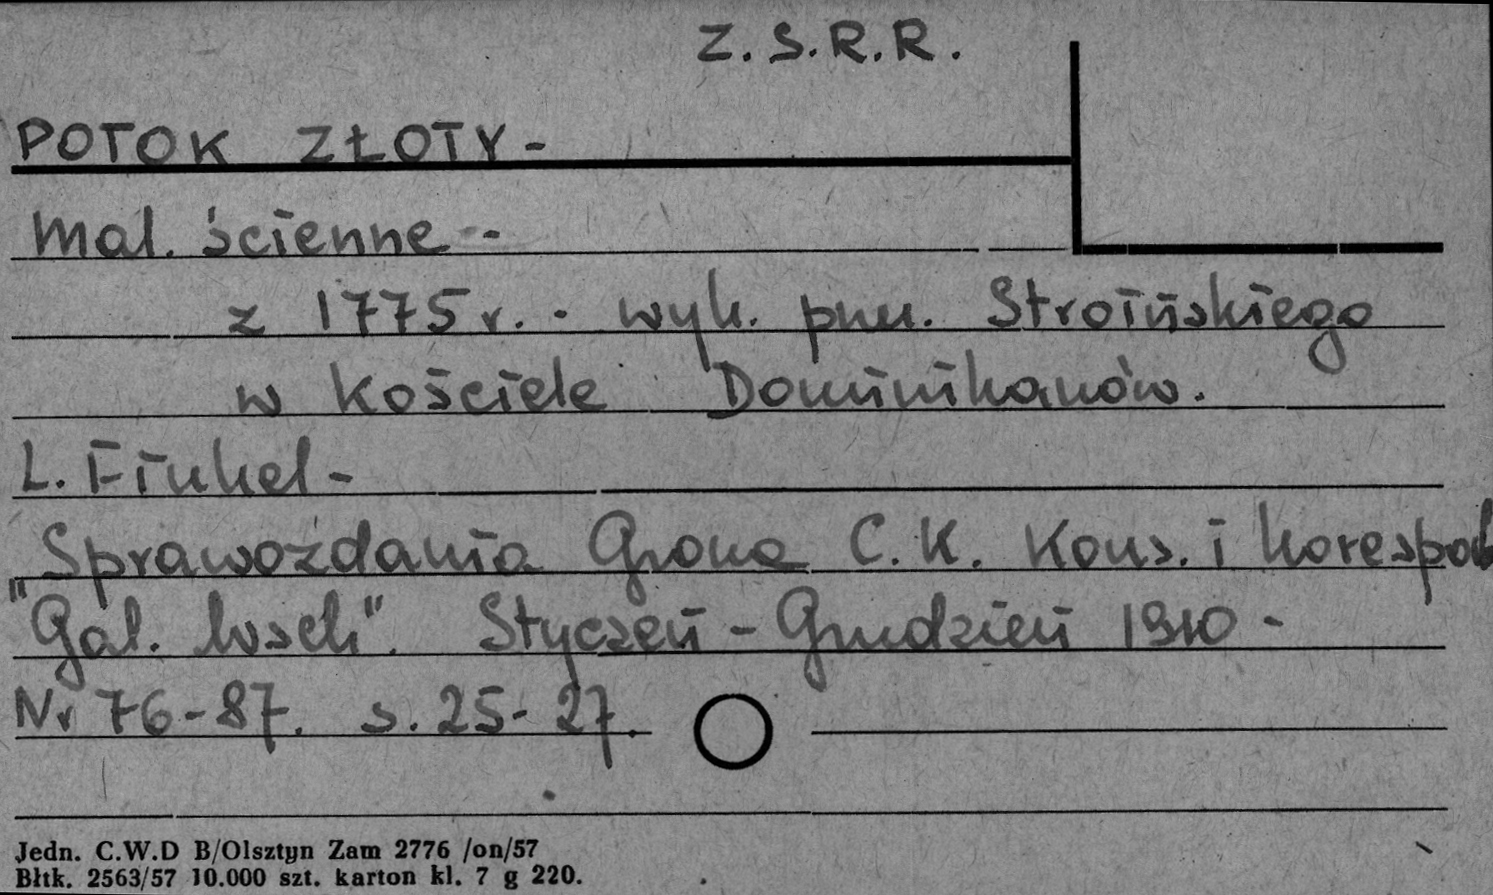 Z.S.R.R.
POTOK ZŁOTY -
Mal. ścienne -
z 1775 r. - wyk. pnu. Stroińskiego
w Kościele Dominikanów.
L. Finkel -
"Sprawozdania Grona C.K. Kons. i korespod
Gal. Wsch". Styczeń - Grudzień 1910 -
Nr 76-87. s. 25-27.
Jedn. C.W.D B/Olsztyn Zam 2776 /on/57
Błtk. 2563/57 10.000 szt. karton kl. 7 g 220.